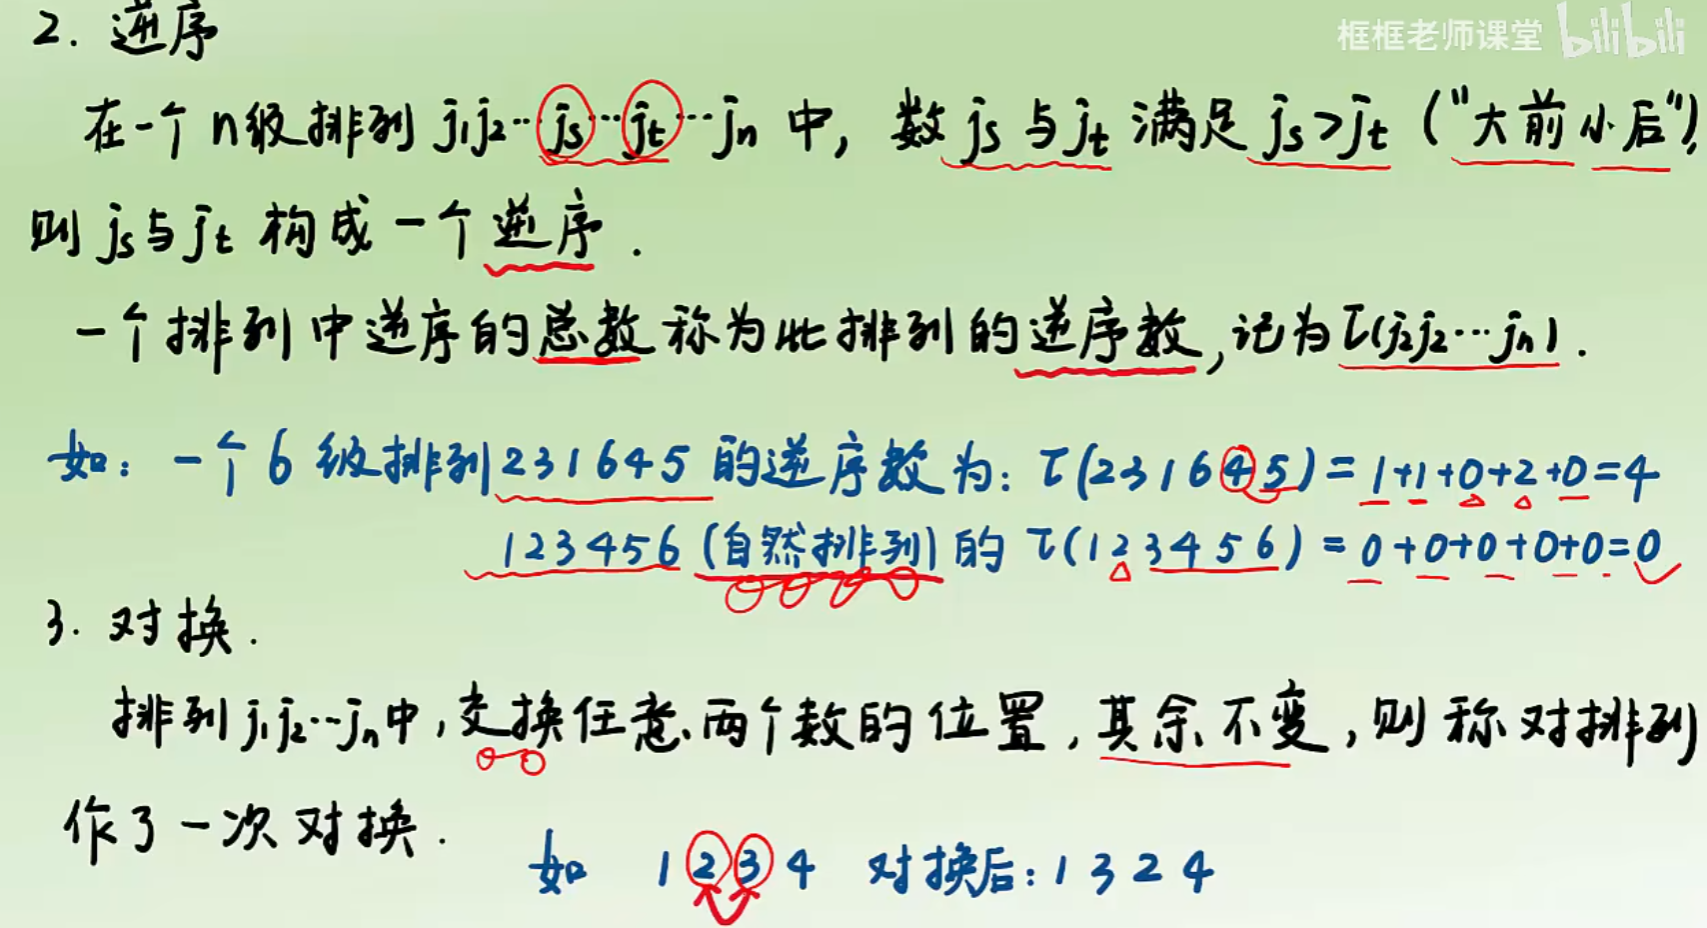 2. 逆序
框框老师课堂 bilibili
在一个n级排列 j₁j₂…js…jt…jn 中, 数js与jt满足 js>jt ("大前小后"),
则js与jt构成一个逆序.
一个排列中逆序的总数称为此排列的逆序数,记为τ(j₂j₂…jn).
如: 一个6级排列231645的逆序数为: τ(231645)=1+1+0+2+0=4
123456(自然排列)的 τ(123456)=0+0+0+0+0=0
3. 对换.
排列j₁j₂…jn中,交换任意两个数的位置,其余不变,则称对排列
作了一次对换.
如 1 2 3 4 对换后: 1 3 2 4